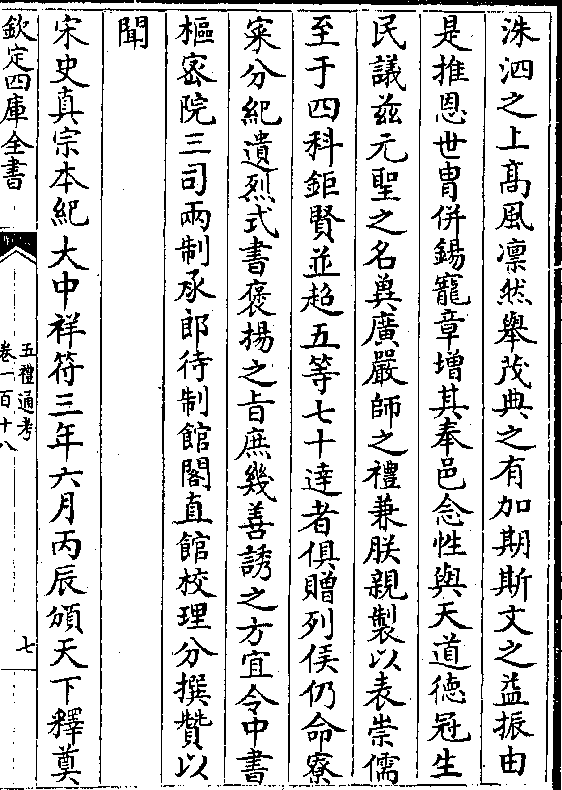 洙泗之上高風凛然舉茂典之有加期斯文之益振由
是推恩世胄併錫寵章增其奉邑念性與天道德冠生
民議兹元聖之名冀廣嚴師之禮兼朕親製以表崇儒
至于四科鉅賢並超五等七十達者俱贈列侯仍命寮
寀分紀遺烈式書褒揚之旨庶幾善誘之方宜令中書
樞宻院三司兩制丞郎待制館閣直館校理分撰贊以
聞
宋史真宗本紀大中祥符三年六月丙辰頒天下釋奠
欽定四庫全書
五禮通考
卷一百十八
七